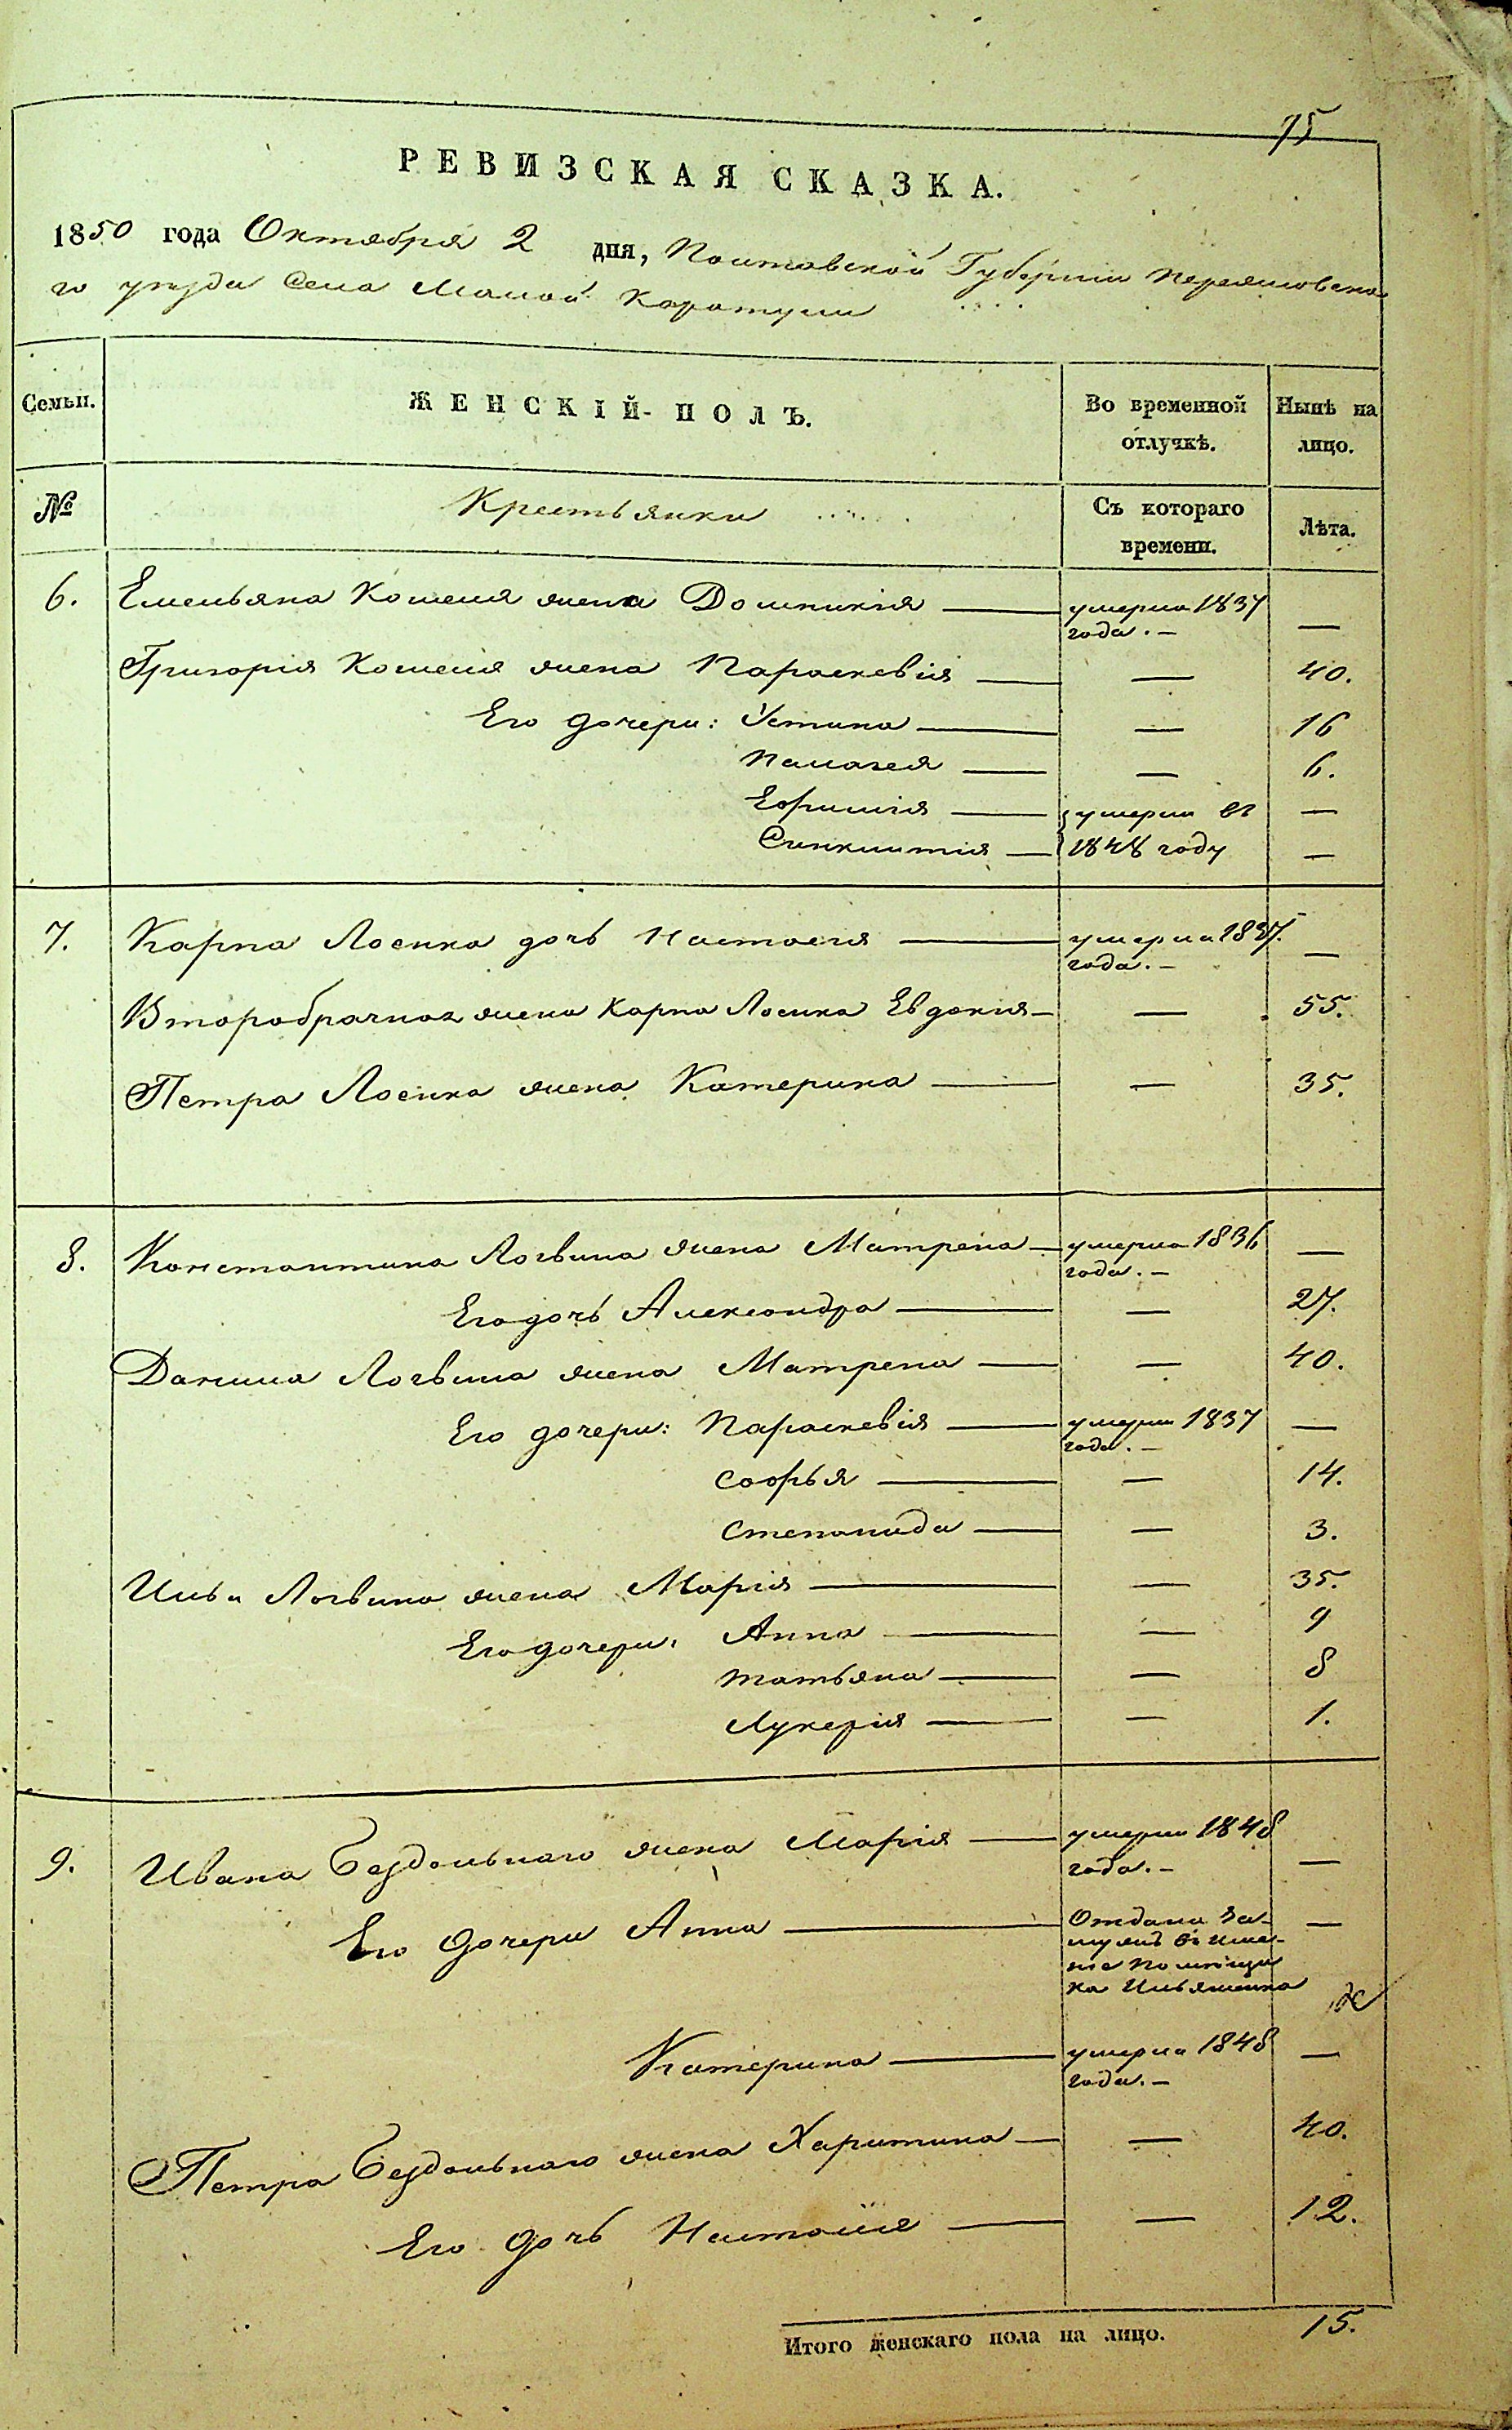 75
РЕВИЗСКАЯ СКАЗКА.
1850 года Октября 2 дня, Полтавской Губернии Переяславска
го уезда Села Малой Каратули
Семьи. ЖЕНСКІЙ ПОЛЪ. Во временной отлучкѣ. Нынѣ на лицо.
№ Крестьянки Съ котораго времени. Лѣта.
6. Емельяна Кошеля жена Домникія — умерла 1837 года. — —
Григорія Кошеля жена Параскевія — — 40.
Его дочери: Устина — — 16
Палагея — — 6.
Ефимія — умерли въ —
Синклитія — 1848 году —
7. Карпа Лосика дочь Настасія — умерла 1837. года. — —
Второбрачная жена Карпа Лосика Евдокия — — 55.
Петра Лосика жена Катерина — — 35.
8. Константина Логвина жена Матрена — умерла 1836 года. — —
Его дочь Александра — — 27.
Данила Логвина жена Матрена — — 40.
Его дочери: Параскевія — умерла 1837 года. — —
Софья — — 14.
Степанида — — 3.
Ильи Логвина жена Марія — — 35.
Его дочери: Анна — — 9
Татьяна — — 8
Лукерія — — 1.
9. Ивана Бездольнаго жена Марія — умерла 1848 года. — —
Его дочери Анна — Отдана за- —
мужъ въ име-
ніе помѣщи
ка Ильяшенка
Катерина — умерла 1848 года. — —
Петра Бездольнаго жена Харитина — — 40.
Его дочь Настасія — — 12.
Итого женскаго пола на лицо. 15.